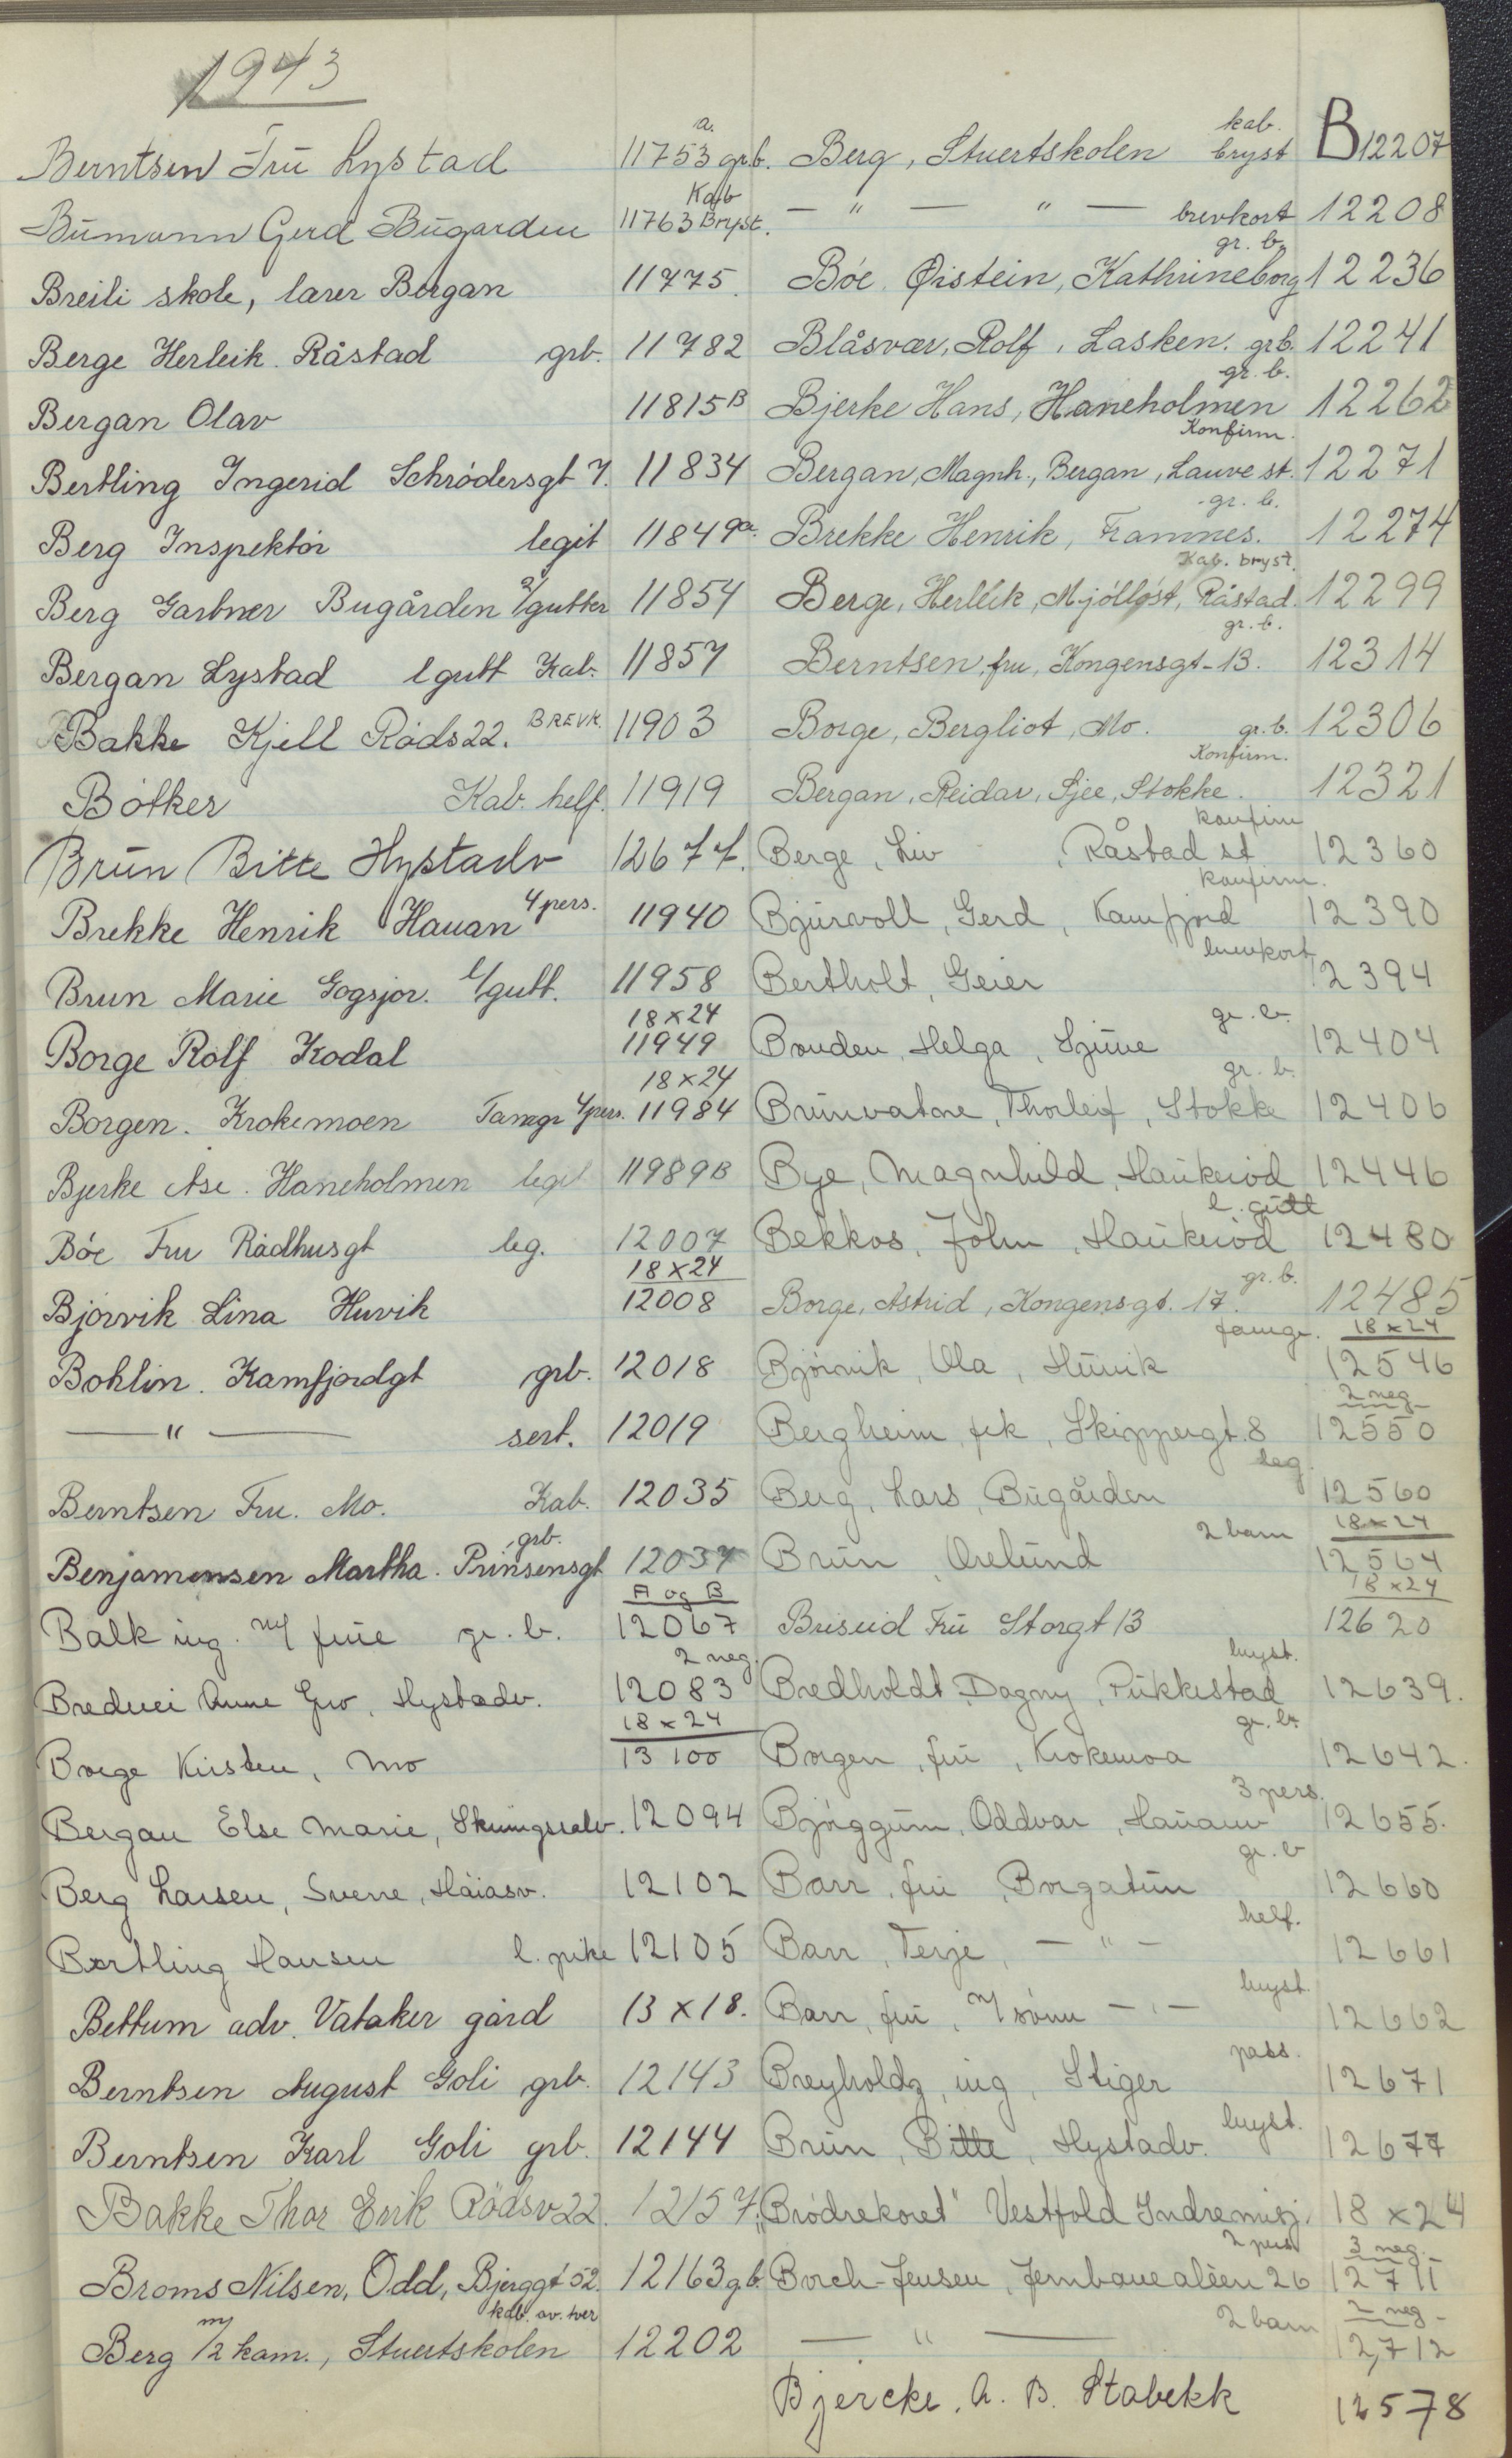 1943
B
Berntsen Frū Lystad 11753 a. grb.
Būmann Gerd Būgarden 11763 Kab Bryst.
Breili skole, lærer Bergan 11775.
Berge Herleik. Råstad grb. 11782
Bergan Olav 11815B
Bertling Ingerid Schrödersgt 7. 11834
Berg Inspektör legit 11849a.
Berg Gartner Bugården 2/gutter 11854
Bergan Lystad l gutt Kab. 11857
Bakke Kjell Röds 22. BREVK. 11903
Bötker Kab. helf. 11919
Brūn Bitte Hystadv 12677.
Brekke Henrik Hauan 4 pers. 11940
Brun Marie Gogsjor. l/gutt. 11958
Borge Rolf Kodal 18x24 11949
Borgen. Krokemoen Famgr 4pers. 18x24 11984
Bjerke Åse. Haneholmen legit 11989B
Böe Fru Rådhusgt leg. 12007
Björvik Lina Huvik 18x24 12008
Bohlin. Kamfjordgt grb. 12018
— " — sert. 12019
Berntsen Fru. Mo. Kab. 12035
Benjaminsen Martha. Prinsensgt grb. 12037
Balk ing. m/ frūe gr. b. A og B 12067
Bredvei Anne Gro, Hystadv. 2 neg. 12083
Borge Kirsten, Mo 18x24 13100
Bergan Else Marie, Skiringssalv. 12094
Berg Larsen, Sverre, Håiasv. 12102
Bertling Hansen l. pike 12105
Bettum adv. Vataker gård 13 x 18.
Berntsen August Goli grb. 12143
Berntsen Karl Goli grb. 12144
Bakke Thor Erik Rödsv 22. 12157.
Broms Nilsen, Odd, Bjerggt 52. 12163 g.b.
Berg m/2 kam., Stuertskolen kab. av. hver 12202
Berg, Stuertskolen kab. bryst 12207
— " — " — brevkort 12208
Böe Øistein, Kathrineborg gr. b. 12236
Blåsvær, Rolf, Lasken. grb. 12241
Bjerke Hans, Haneholmen gr. b. 12262
Bergan, Magnh., Bergan, Lauve st. Konfirm. 12271
Brekke Henrik, Framnes. gr. b. 12274
Berge, Herleik, Mjölløst, Råstad. Kab. bryst. 12299
Berntsen, fru, Kongensgt - 13. gr. b. 12314
Borge, Bergliot, Mo. gr. b. 12306
Bergan, Reidar, Sjee, Stokke. Konfirm. 12321
Berge, Liv, Råstad st. konfirm 12360
Bjūrvoll, Gerd, Kamfjord konfirm. 12390
Bertholt, Geier brevkort 12394
Bruden, Helga, Sjūue gr. b. 12404
Brūnvatne, Thorleif, Stokke gr. b. 12406
Bye, Magnhild, Haūkeröd 12446
Bekkos, John, Haūkeröd l. gūtt 12480
Borge, Astrid, Kongensgt. 17. gr. b. 12485
Björvik, Ola, Hūvik famgr. 18x24 12546
Bergheim, frk, Skippergt. 8 2 neg 12550
Berg, Lars, Būgården leg. 12560
Brūn, Ørelūnd 2 barn 18x24 12564
Briseid Frū Storgt 13 18x24 12620
Bredholdt, Dagny, Pūkkestad bryst. 12639.
Borgen, frū, Krokemoa gr. b. 12642.
Bjørggūm, Oddvar, Haūanv 3 pers. 12655.
Barr, frū, Borgatūn gr. b 12660
Barr, Terje, — " — helf. 12661
Barr, frū, m/ sønn — " — bryst. 12662
Breyholdz, ing, Stiger pass. 12671
Brūn, Bitte, Hystadv. bryst. 12677
"Brödrekoret" Vestfold Indremisj. 18 x 24
Borch-Jensen, Jernbanealéen 26 2 pers 3 neg. 12711
— " — 2 barn 2 neg 12712
Bjercke. A. B. Stabekk 12578